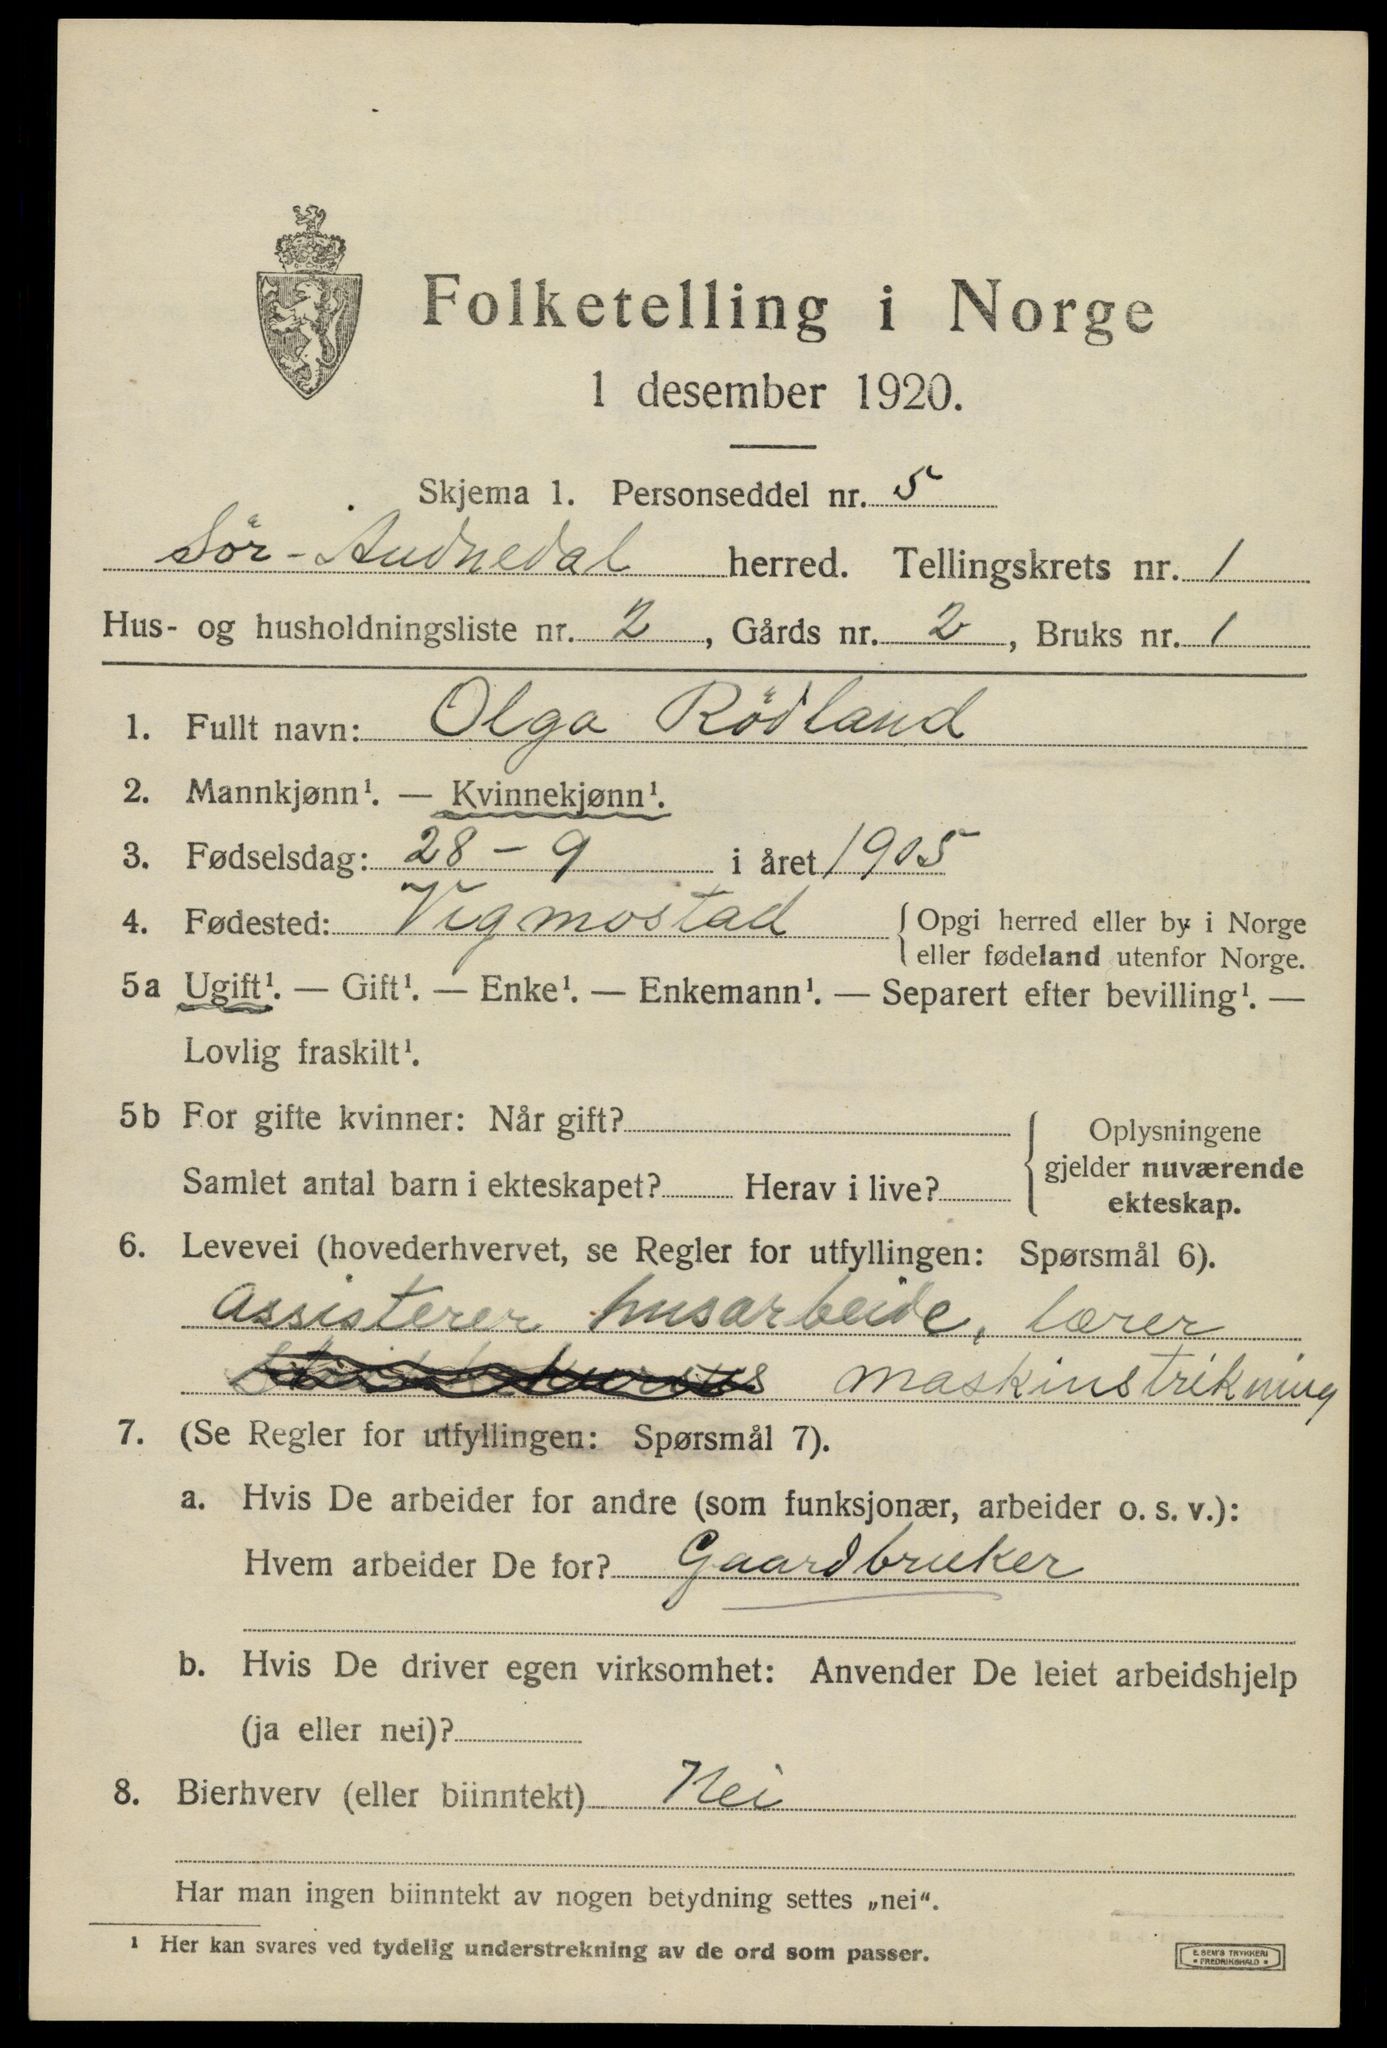 Folketelling i Norge
1 desember 1920.
Skjema 1. Personseddel nr. 5
Sör-Audnedal herred. Tellingskrets nr. 1
Hus- og husholdningsliste nr. 2, Gårds nr. 2, Bruks nr. 1
1. Fullt navn: Olga Rödland
2. Mannkjønn¹. — Kvinnekjønn¹.
3. Fødselsdag: 28 - 9 i året 1905
4. Fødested: Vigmostad { Opgi herred eller by i Norge
eller fødeland utenfor Norge.
5a Ugift¹. — Gift¹. — Enke¹. — Enkemann¹. — Separert efter bevilling¹. —
Lovlig fraskilt¹.
5b For gifte kvinner: Når gift?
Samlet antal barn i ekteskapet? Herav i live?
Oplysningene
gjelder nuværende
ekteskap.
6. Levevei (hovederhvervet, se Regler for utfyllingen: Spørsmål 6).
assisterer husarbeide, lærer
maskinstrikning
7. (Se Regler for utfyllingen: Spørsmål 7).
a. Hvis De arbeider for andre (som funksjonær, arbeider o. s. v.):
Hvem arbeider De for? Gaardbruker
b. Hvis De driver egen virksomhet: Anvender De leiet arbeidshjelp
(ja eller nei)?
8. Bierhverv (eller biinntekt) Nei
Har man ingen biinntekt av nogen betydning settes „nei“.
¹ Her kan svares ved tydelig understrekning av de ord som passer.
E. SEM'S TRYKKERI
• FREDRIKSHALD •